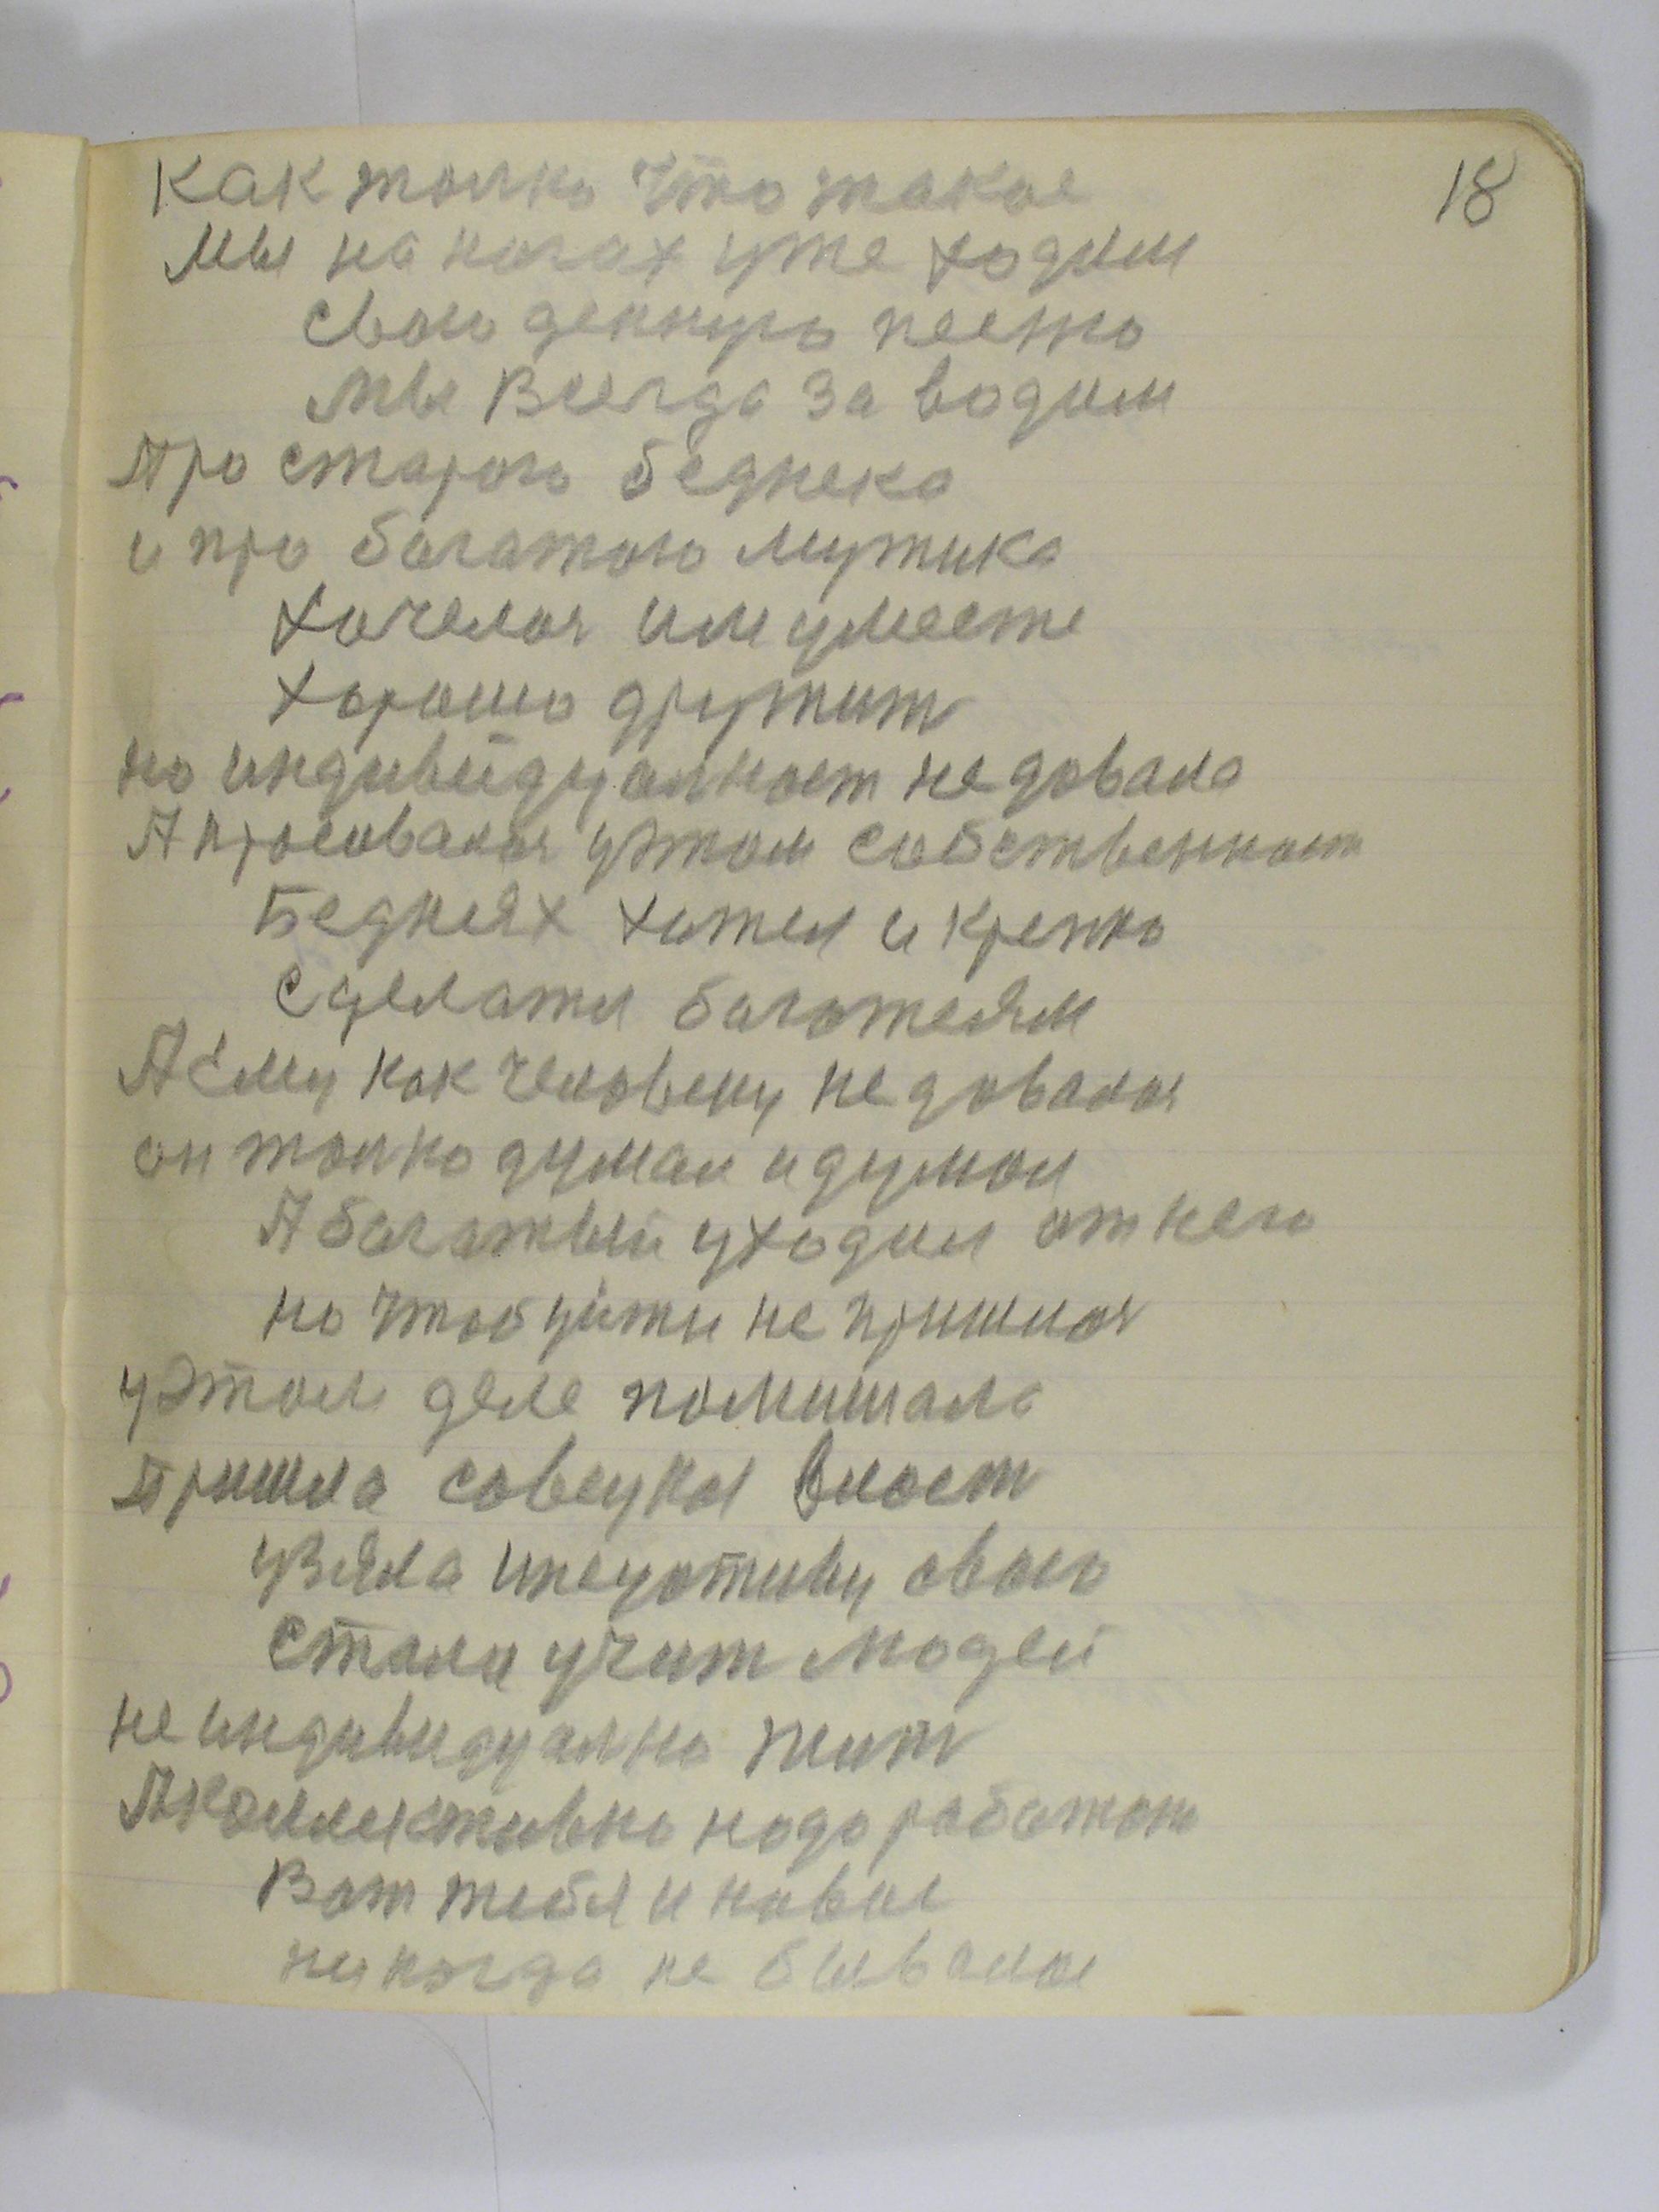 18
Как толко что такое
Мы на ногах уже ходим
Свою денную песню
Мы Всегда За водим
Про старого беднека
и про богатого мужика
Хочелося им уместе
Хорошо дружит
но индивейдуалност не довала
А просовалося уэтом собственност
Беднеях хотел и крепко
Сделатся богатеям
А ему как человеку не довалося
он толко думал и думал
А богатый уходил от него
но чтоб уйти не пришлося
уэтом деле помишала
пришла совецкая Власт
узяла инецотиву свою
Стала учит людей
не индивидуално жит
А коллективно надо работат
Вот тебе и новое
никогда не бывалое